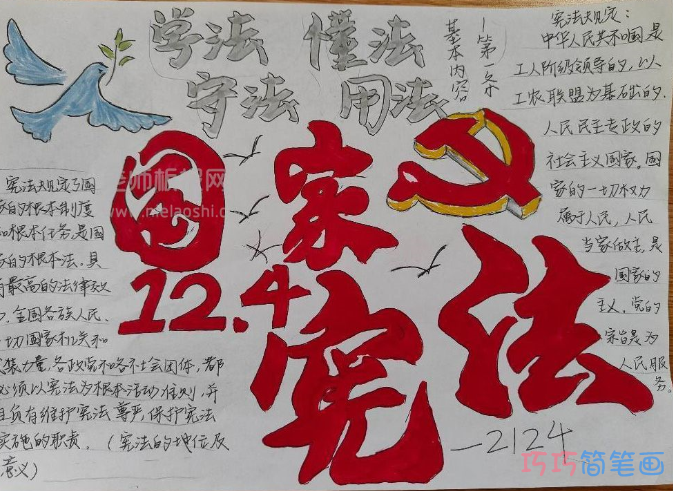 学法 懂法
守法 用法
第一条
基本内容
国 家
12.4
宪 法
-2124
宪法规定：
中华人民共和国是
工人阶级领导的，以
工农联盟为基础的
人民民主专政的
社会主义国家。国
家的一切权力
属于人民，人民
当家做主，是
国家的
主义，党的
为
人民服
务。
宪法规定了国
家的根本制度
和根本任务是国
家的根本法，具
有最高的法律效
力，全国各族人民、
一切国家机关和
力量，各政党和各社会团体，都
必须以宪法为根本活动准则，并
且负有维护宪法尊严，保护宪法
实施的职责。（宪法的地位及
意义）
老师板报网
www.melaoshi.com
巧巧简笔画